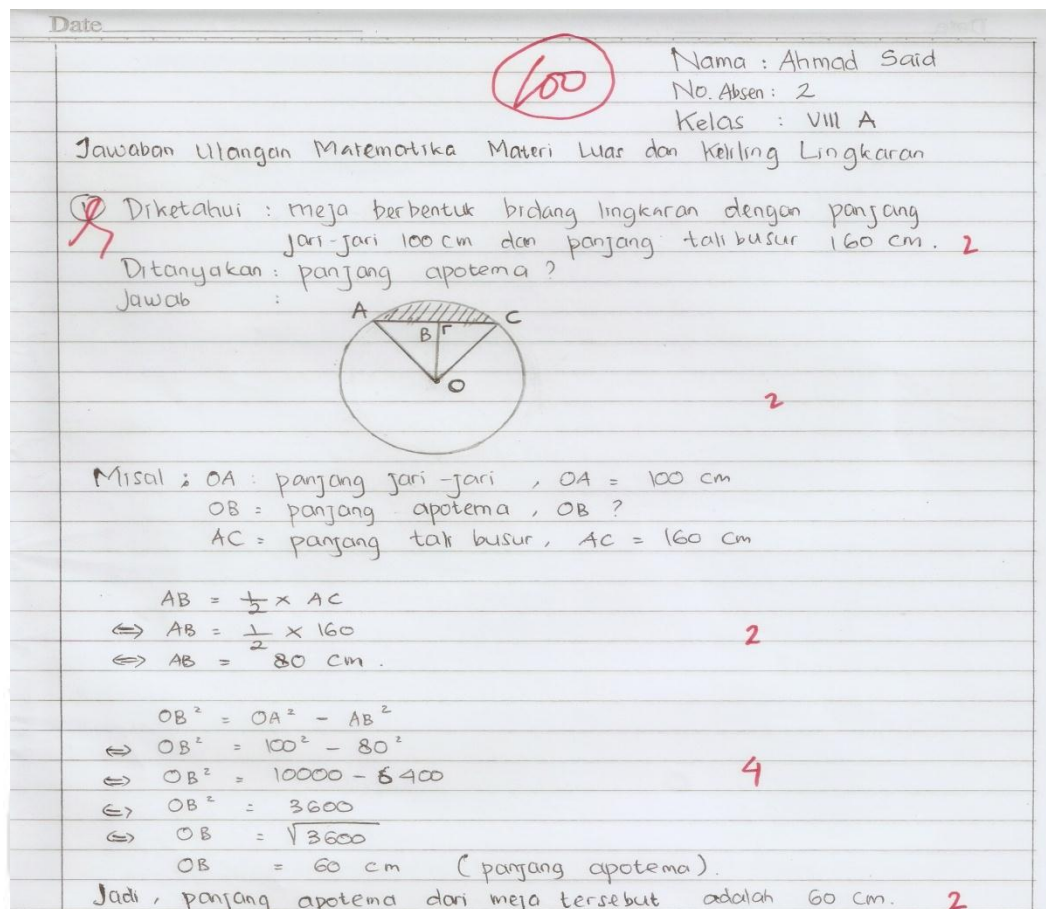 Date
100
Nama : Ahmad Said
No. Absen : 2
Kelas : VIII A
Jawaban Ulangan Matematika Materi Luas dan Keliling Lingkaran
1 Diketahui : meja berbentuk bidang lingkaran dengan panjang
jari-jari 100 cm dan panjang tali busur 160 cm. 2
Ditanyakan : panjang apotema ?
Jawab :
A C
B
O
2
Misal ; OA : panjang jari-jari , OA = 100 cm
OB = panjang apotema , OB ?
AC = panjang tali busur , AC = 160 cm
AB = 1/2 × AC
⇔ AB = 1/2 × 160 2
⇔ AB = 80 cm .
OB² = OA² - AB²
⇔ OB² = 100² - 80²
⇔ OB² = 10000 - 6400 4
⇔ OB² = 3600
⇔ OB = √3600
OB = 60 cm (panjang apotema).
Jadi , panjang apotema dari meja tersebut adalah 60 cm. 2